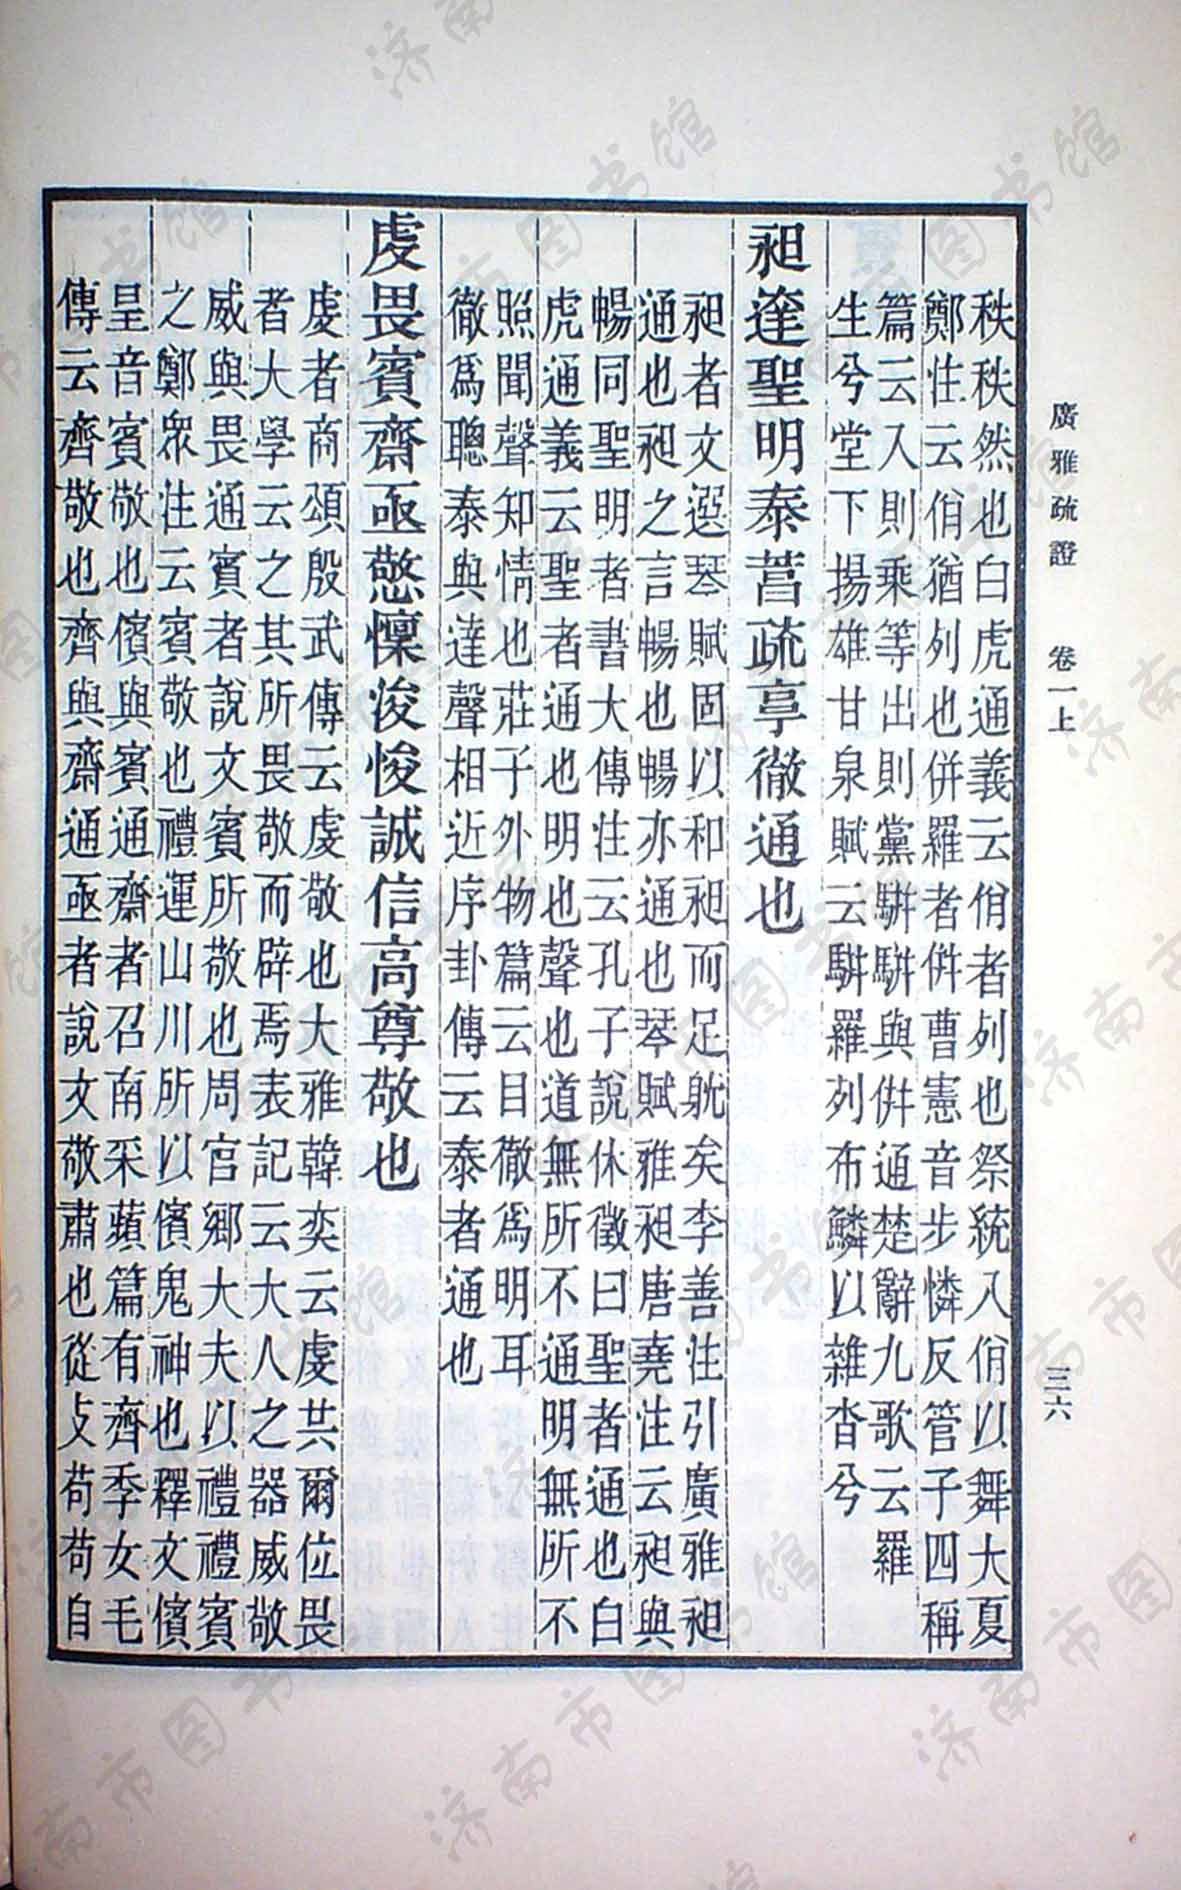 廣雅疏證　卷一上　三六
秩秩然也白虎通義云佾者列也祭統八佾以舞大夏
鄭注云佾猶列也併羅者併曹憲音步憐反管子四稱
篇云入則乘等出則黨駢駢與併通楚辭九歌云羅
生兮堂下揚雄甘泉賦云駢羅列布鱗以雜沓兮
昶達聖明泰𦯧疏亨徹通也
昶者文選琴賦固以和昶而足躭矣李善注引廣雅昶
通也昶之言暢也暢亦通也琴賦雅昶唐堯注云昶與
暢同聖明者書大傳注云孔子說休徵曰聖者通也白
虎通義云聖者通也明也聲也道無所不通明無所不
照聞聲知情也莊子外物篇云目徹爲明耳
徹爲聰泰與達聲相近序卦傳云泰者通也
虔畏賓齋亟憼懍浚悛誠信高尊敬也
虔者商頌殷武傳云虔敬也大雅韓奕云虔共爾位畏
者大學云之其所畏敬而辟焉表記云大人之器威敬
威與畏通賓者說文賓所敬也周官鄉大夫以禮禮賓
之鄭眾注云賓敬也禮運山川所以儐鬼神也釋文儐
皇音賓敬也儐與賓通齋者召南采蘋篇有齊季女毛
傳云齊敬也齊與齋通亟者說文敬肅也從攴茍茍自